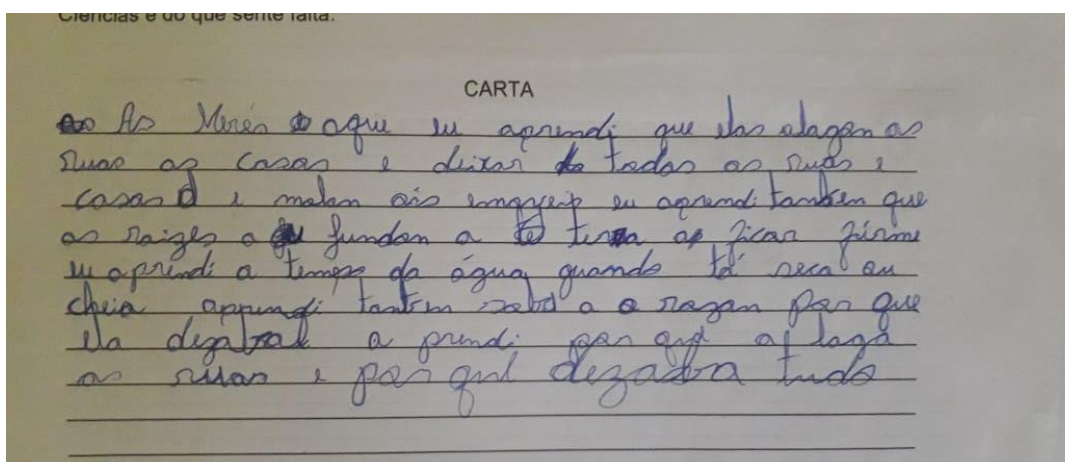 Ciências e do que sente falta.
CARTA
As Marés aque eu aprendi que elas alagan as
ruas as casas e deixar todas as ruas e
casas e matan ais eu aprendi tanben que
as raizes a fundan a terra a ficar firme
eu aprendi a tempo da água quando tá seca ou
cheia apprendi tantem a razan por que
ela dezaba a prendi por que a laga
as ruas e por que dezaba tudo